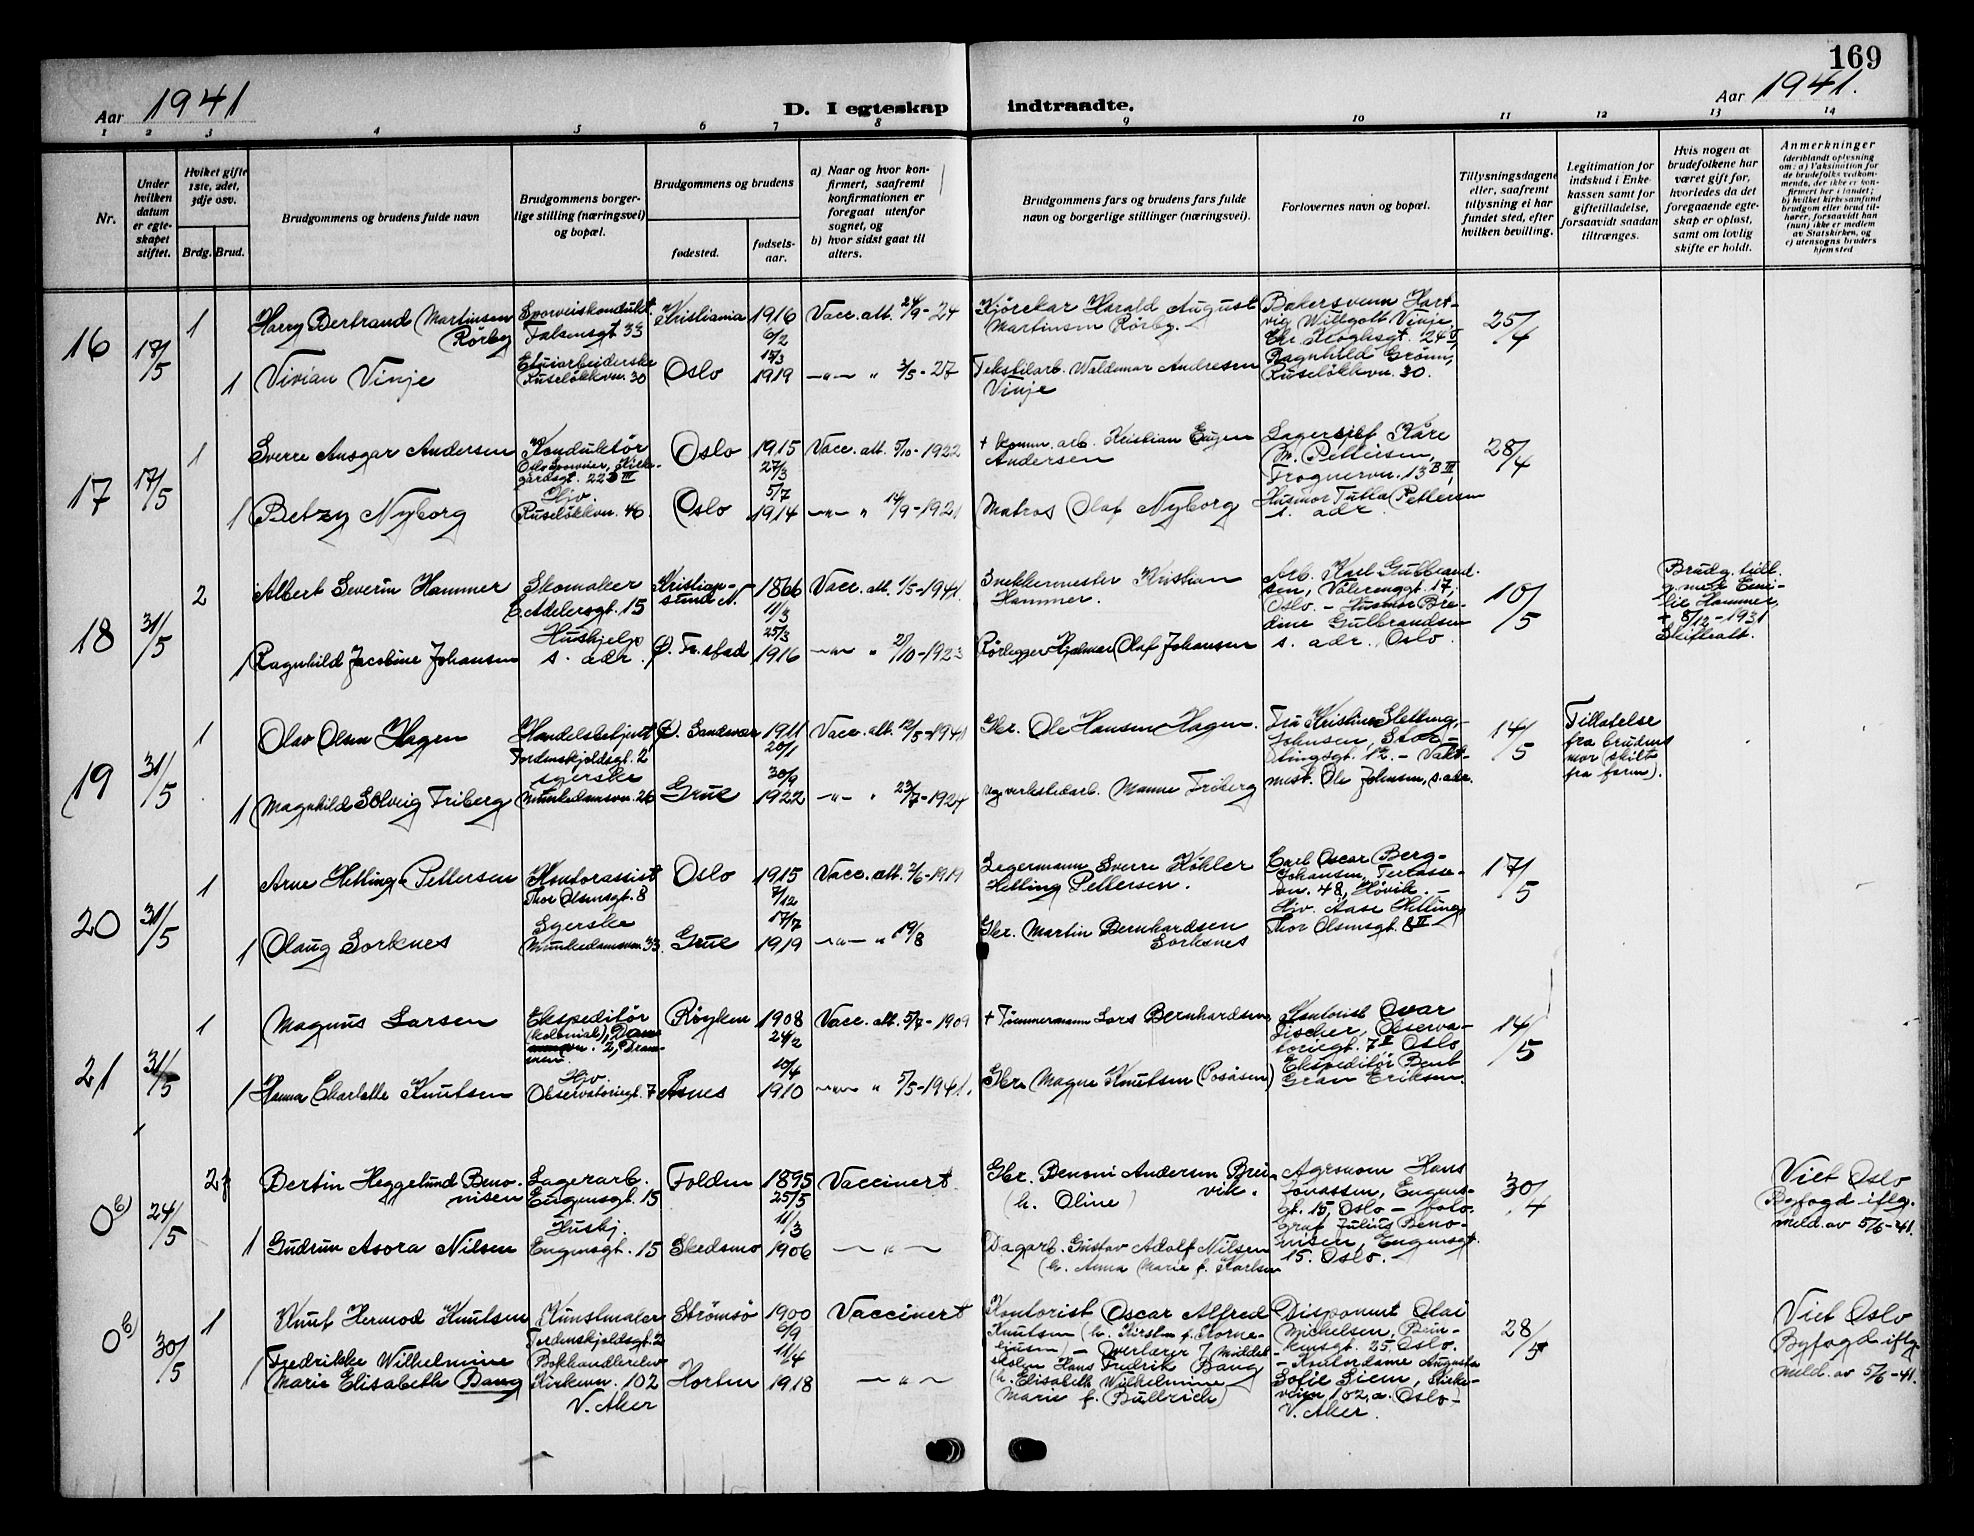 169
Aar 1941
D. I egteskap indtraadte.
Aar 1941.
1 2 3 4 5 6 7 8 9 10 11 12 13 14
Nr.
Under
hvilken
datum
er egte-
skapet
stiftet.
Hvilket gifte
1ste, 2det,
3dje osv.
Brdg. Brud.
Brudgommens og brudens fulde navn
Brudgommens borger-
lige stilling (næringsvei)
og bopæl.
Brudgommens og brudens
fødested.
fødsels-
aar.
a) Naar og hvor kon-
firmert, saafremt
konfirmationen er
foregaat utenfor
sognet, og
b) hvor sidst gaat til
alters.
Brudgommens fars og brudens fars fulde
navn og borgerlige stillinger (næringsvei).
Forlovernes navn og bopæl.
Tillysningsdagene
eller, saafremt
tillysning ei har
fundet sted, efter
hvilken bevilling.
Legitimation for
indskud i Enke-
kassen samt for
giftetilladelse,
forsaavidt saadan
tiltrænges.
Hvis nogen av
brudefolkene har
været gift før,
hvorledes da det
foregaaende egte-
skap er opløst,
samt om lovlig
skifte er holdt.
Anmerkninger
(deriblandt oplysning
om: a) Vaksination for
de brudefolks vedkom-
mende, der ikke er kon-
firmert her i landet;
b) hvilket kirkesamfund
brudgom eller brud til-
hører, forsaavidt han
(hun) ikke er medlem
av Statskirken, og
c) utensogns bruders
hjemsted
16
18/5
1
Harry Bertrand Martinsen
Rörby
Sporveiskondukt.
Falsensgt 33
Kristiania
1916
6/2
Vacc. alt. 24/9-24
Kjörekar Harald August
Martinsen Rörby.
Bakersvenn Hart-
vig Willgott Vinje,
Chr. Kroghsgt. 24 II,
Ragnhild Grönn,
Ruselökkvn. 30.
25/4
1
Vivian Vinje
Etuiarbeiderske
Ruselökkvn. 30
Oslo
15/3
1919
—"— " 3/5-27
Tekstilarb. Waldemar Andresen
Vinje
17
17/5
1
Sverre Ansgar Andersen
Konduktör
Oslo sporveier, Kirke-
gårdsgt. 22 b III
Oslo
1915
27/3
Vacc. alt. 5/10-1922
+ komm. arb. Kristian Eugen
Andersen
Lagersjef Kåre
M. Pettersen,
Frognervn. 13 B III,
Husmor Tutta Pettersen
s. adr.
28/4
1
Betzy Nyborg
Hjv.
Ruselökkvn. 46
Oslo
5/7
1914
—"— " 14/9-1921
Matros Olaf Nyborg
18
31/5
2
Albert Severin Hammer
Skomaker
C. Adelersgt. 15
Kristian-
sund N.
1866
11/3
Vacc. alt. 1/5-1941.
Snekkermester Kristian
Hammer.
Arb. Karl Gulbrand-
sen, Vålerenggt. 17,
Oslo. - Husmor Bre-
dine Gulbrandsen
s. adr., Oslo.
10/5
Brudg. tidl.
g. med Emi-
lie Hammer,
+ 8/12-1931
Skifteatt.
1
Ragnhild Jacobine Johansen
Hushjelp
s. adr.
Ø. Fr.stad
25/3
1916
—"— " 21/10-1923
Rörlegger Hjalmar Olaf Johansen
19
31/5
1
Olav Olsen Hagen
Handelsbetjent
Tordenskjoldsgt. 2
Ø. Sandsvær
1911
20/1
Vacc. alt. 12/5-1941
Gbr. Ole Hansen Hagen.
Fru Kristine Sletteng-
Johnsen, Stor-
tingsgt. 12. - Vakt-
mest. Ole Johnsen, s. adr.
14/5
Tillatelse
fra brudens
mor (skilt
fra faren).
1
Magnhild Solveig Friberg
syerske
Munkedamsvn. 26
Grue
30/9
1922
—"— " 23/7-1924
Veiverkstedarb. Manne Friberg
20
31/5
1
Arne Hetting Pettersen
Kontorassist
Thor Olsensgt. 8
Oslo
1915
7/12
Vacc. att. 2/6-1919
Legermann Sverre Köhler
Hetting Pettersen.
Carl Oscar Berg-
Johansen, Terasse-
vn. 48, Hövik. -
Hjv. Aase Hetting,
Thor Olsensgt. 8 II
17/5
1
Olaug Sorknes
Syerske
Munkedamsvn. 33.
Grue
17/7
1919
—"— " 19/8
Gbr. Martin Bernhardsen
Sorknes
21
31/5
1
Magnus Larsen
Ekspeditör
(kolonial),
2, Dram-
men
Röyken
1908
24/2
Vacc. att. 5/7-1909
+ Tömmermann Lars Bernhardsen
Kontorist Ovar
Fischer, Observa-
toriegt. 7 II Oslo
Ekspeditör Bent
Gran Eriksen.
14/5
1
Hanna Charlotte Knutsen
Hjv.
Observatoriegt. 7
Åsnes
10/4
1910
—"— " 5/5-1941.
Gbr. Magne Knutsen (Posåsen)
0 b)
24/5
2f
Bertin Heggelund Beno-
nisen
Lagerarb.
Eugensgt. 15
Folden
1895
25/5
Vaccinert
Gbr. Benoni Andersen Brei-
vik.
(h. Oline)
Agronom Hans
Jonassen, Eugens-
gt. 15, Oslo - foto-
graf Julius Beno-
nisen, Eugensgt.
15. Oslo.
30/4
Viet Oslo
Byfogd iflg.
meld. av 5/6-41.
1
Gudrun Asora Nilsen
Hushj.
Eugensgt. 15
Skedsmo
11/3
1906
— " —
Dagarb. Gustav Adolf Nilsen
(h. Anna Marie f. Karlsen
0 b)
30/5
1
Knut Hermod Knutsen
Kunstmaler
Tordenskjoldsgt. 2
Strömsö
1900
6/9
Vaccinert
Kontorist Oscar Alfred
Knutsen (h. Kirsten f. Korne-
liussen) - Overlærer v/ Middel-
skolen Hans Fredrik Bang
(h. Elisabeth Wilhelmine
Marie f. Bullrich)
Disponent Olai
Michelsen,
25, Oslo.
- Kontordame Augusta
Sofie Siem, Kirke-
veien 102, a. Oslo-
V. Aker.
28/5
Viet Oslo
Byfogd iflg
meld. av 5/6-41.
1
Fredrikke Wilhelmine
Marie Elisabeth Bang
Bokhandlerelev
Kirkevn. 102
V. Aker
Horten
11/4
1918
— " —